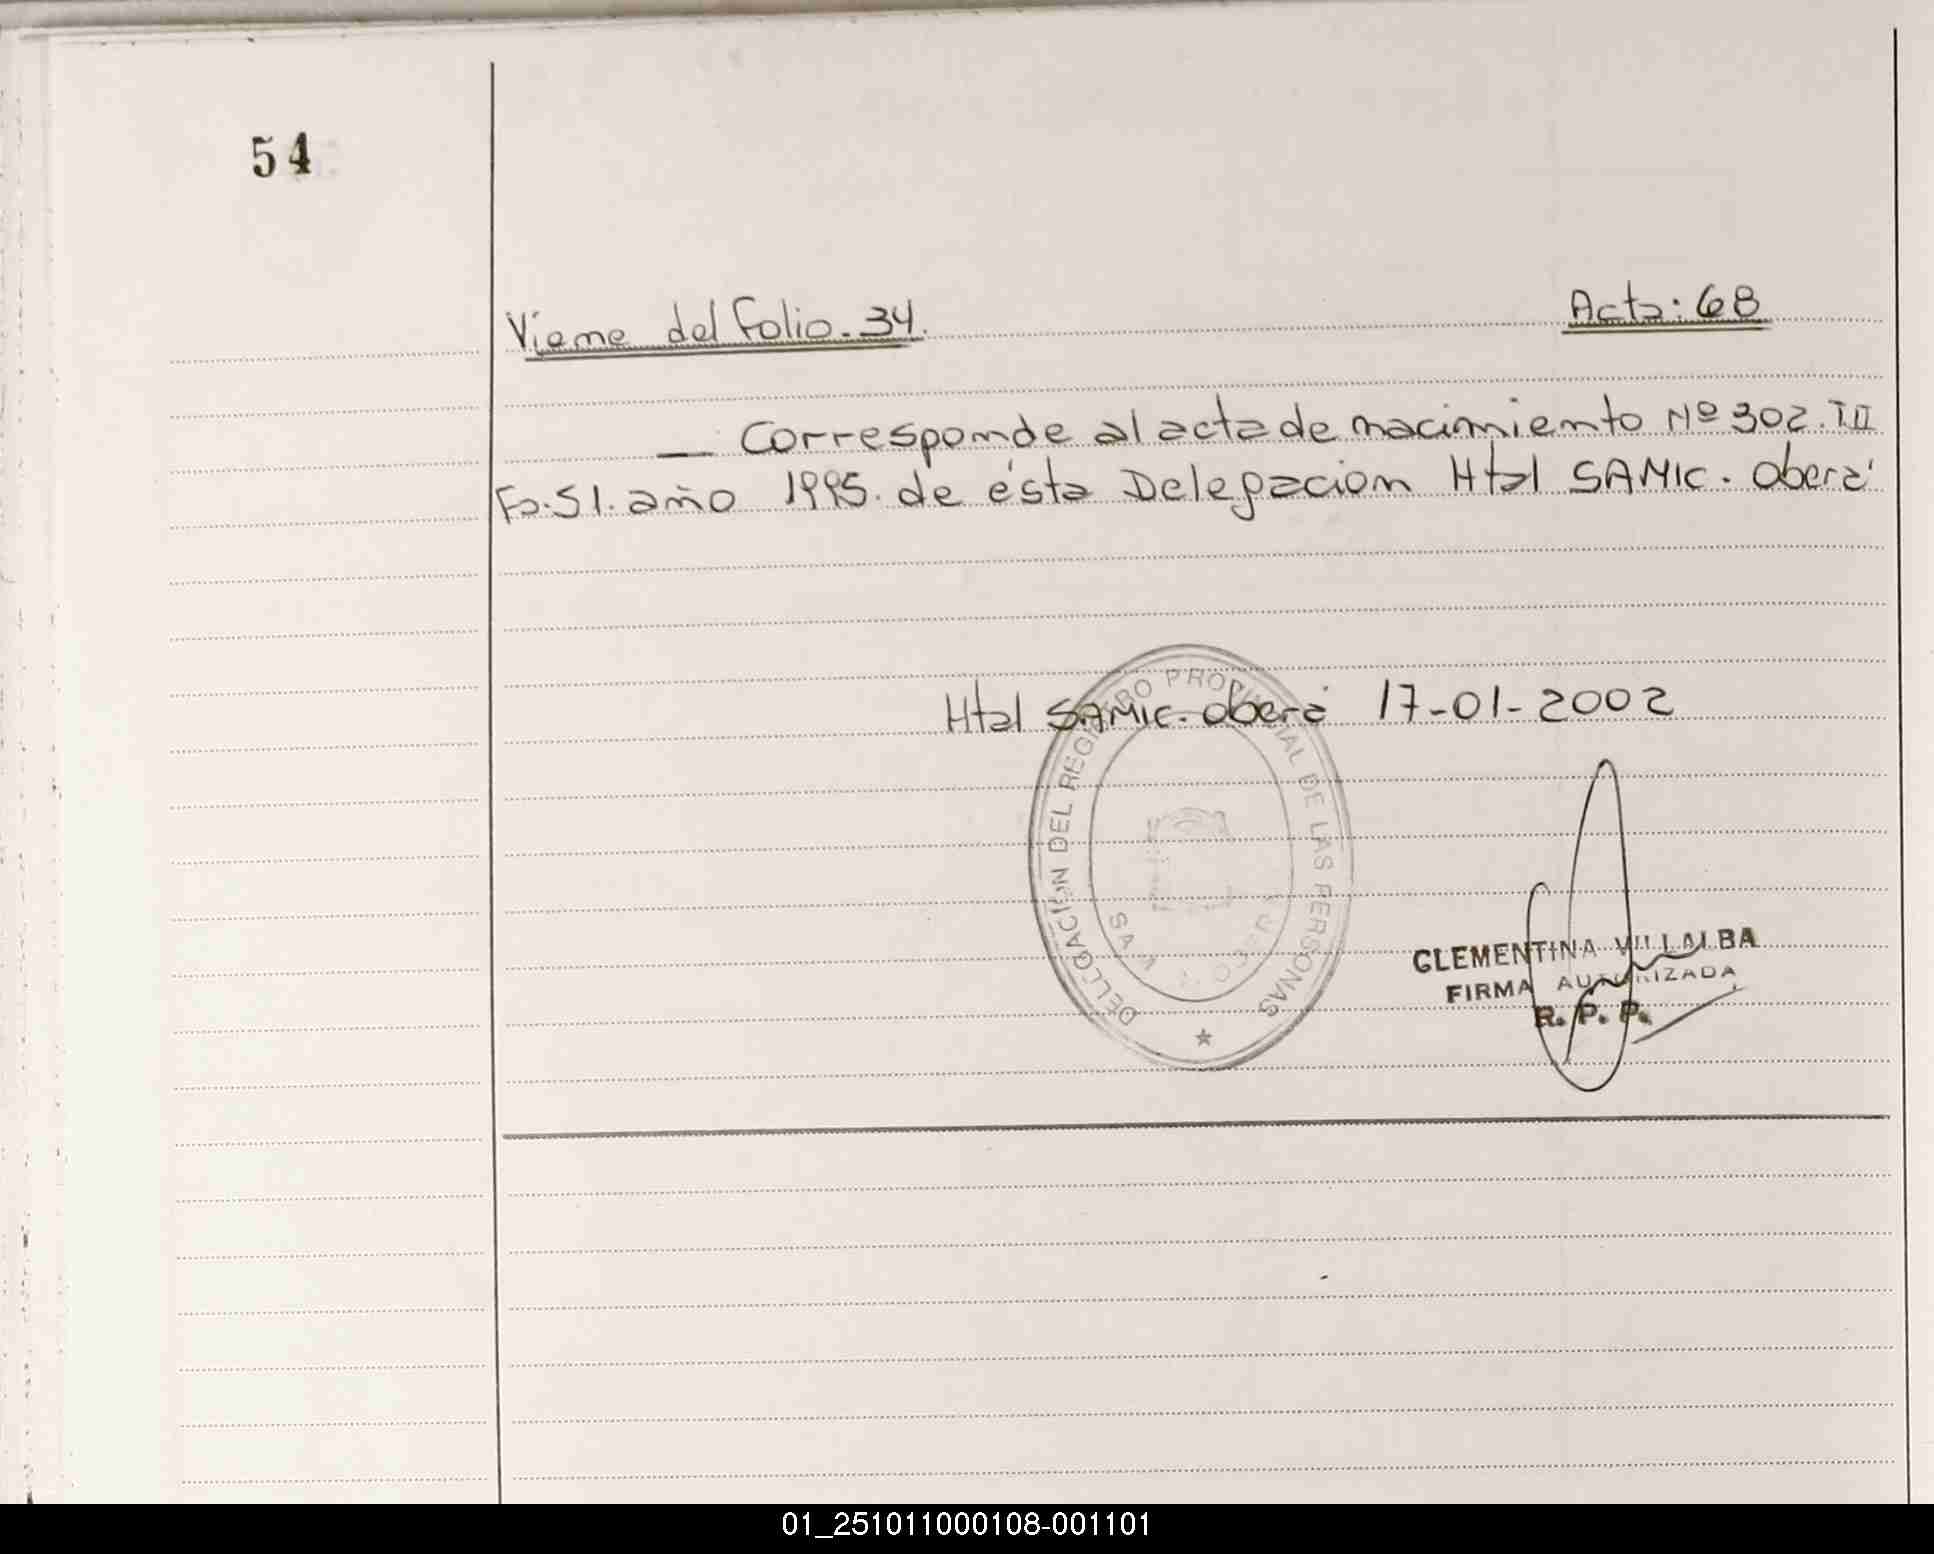 54
Viene del Folio. 34.
Acta: 68
— Corresponde al acta de nacimiento Nº 302. T.II
Fo. 51. año 1995. de ésta Delegacion Htal SAMIC. Oberá
Htal SAMIC. Oberá 17-01-2002
DELEGACIÓN DEL REGISTRO PROVINCIAL DE LAS PERSONAS
CLEMENTINA VILLALBA
FIRMA AUTORIZADA
R. P. P.
01_251011000108-001101